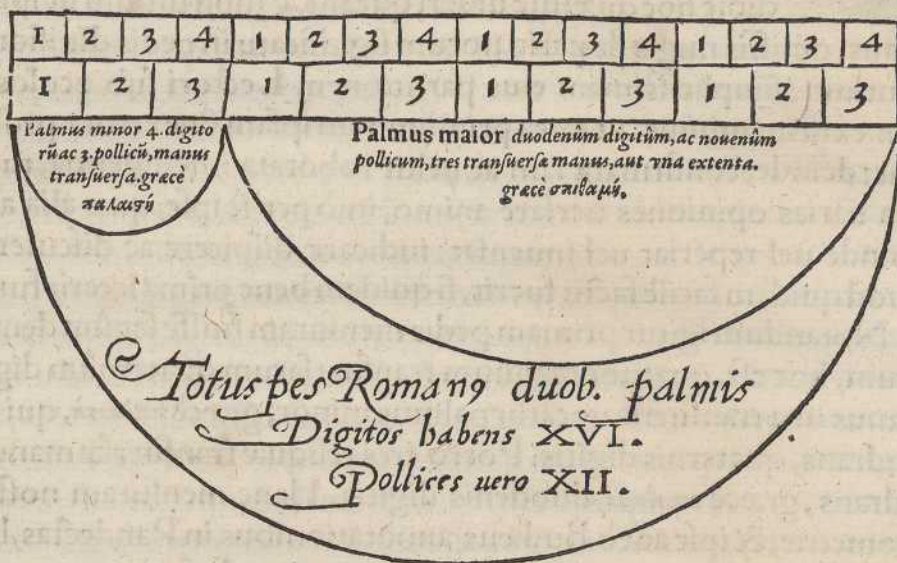 1 2 3 4 1 2 3 4 1 2 3 4 1 2 3 4
1 2 3 1 2 3 1 2 3 1 2 3
Palmus minor 4. digito
rũ ac 3. pollicũ, manus
tranſuerſa. græcè
παλαιςὴ
Palmus maior duodenûm digitûm, ac nouenûm
pollicum, tres tranſuerſæ manus, aut vna extenta.
græcè σπιθαμὴ.
Totus pes Romanꝯ duob. palmis
Digitos habens XVI.
Pollices uero XII.